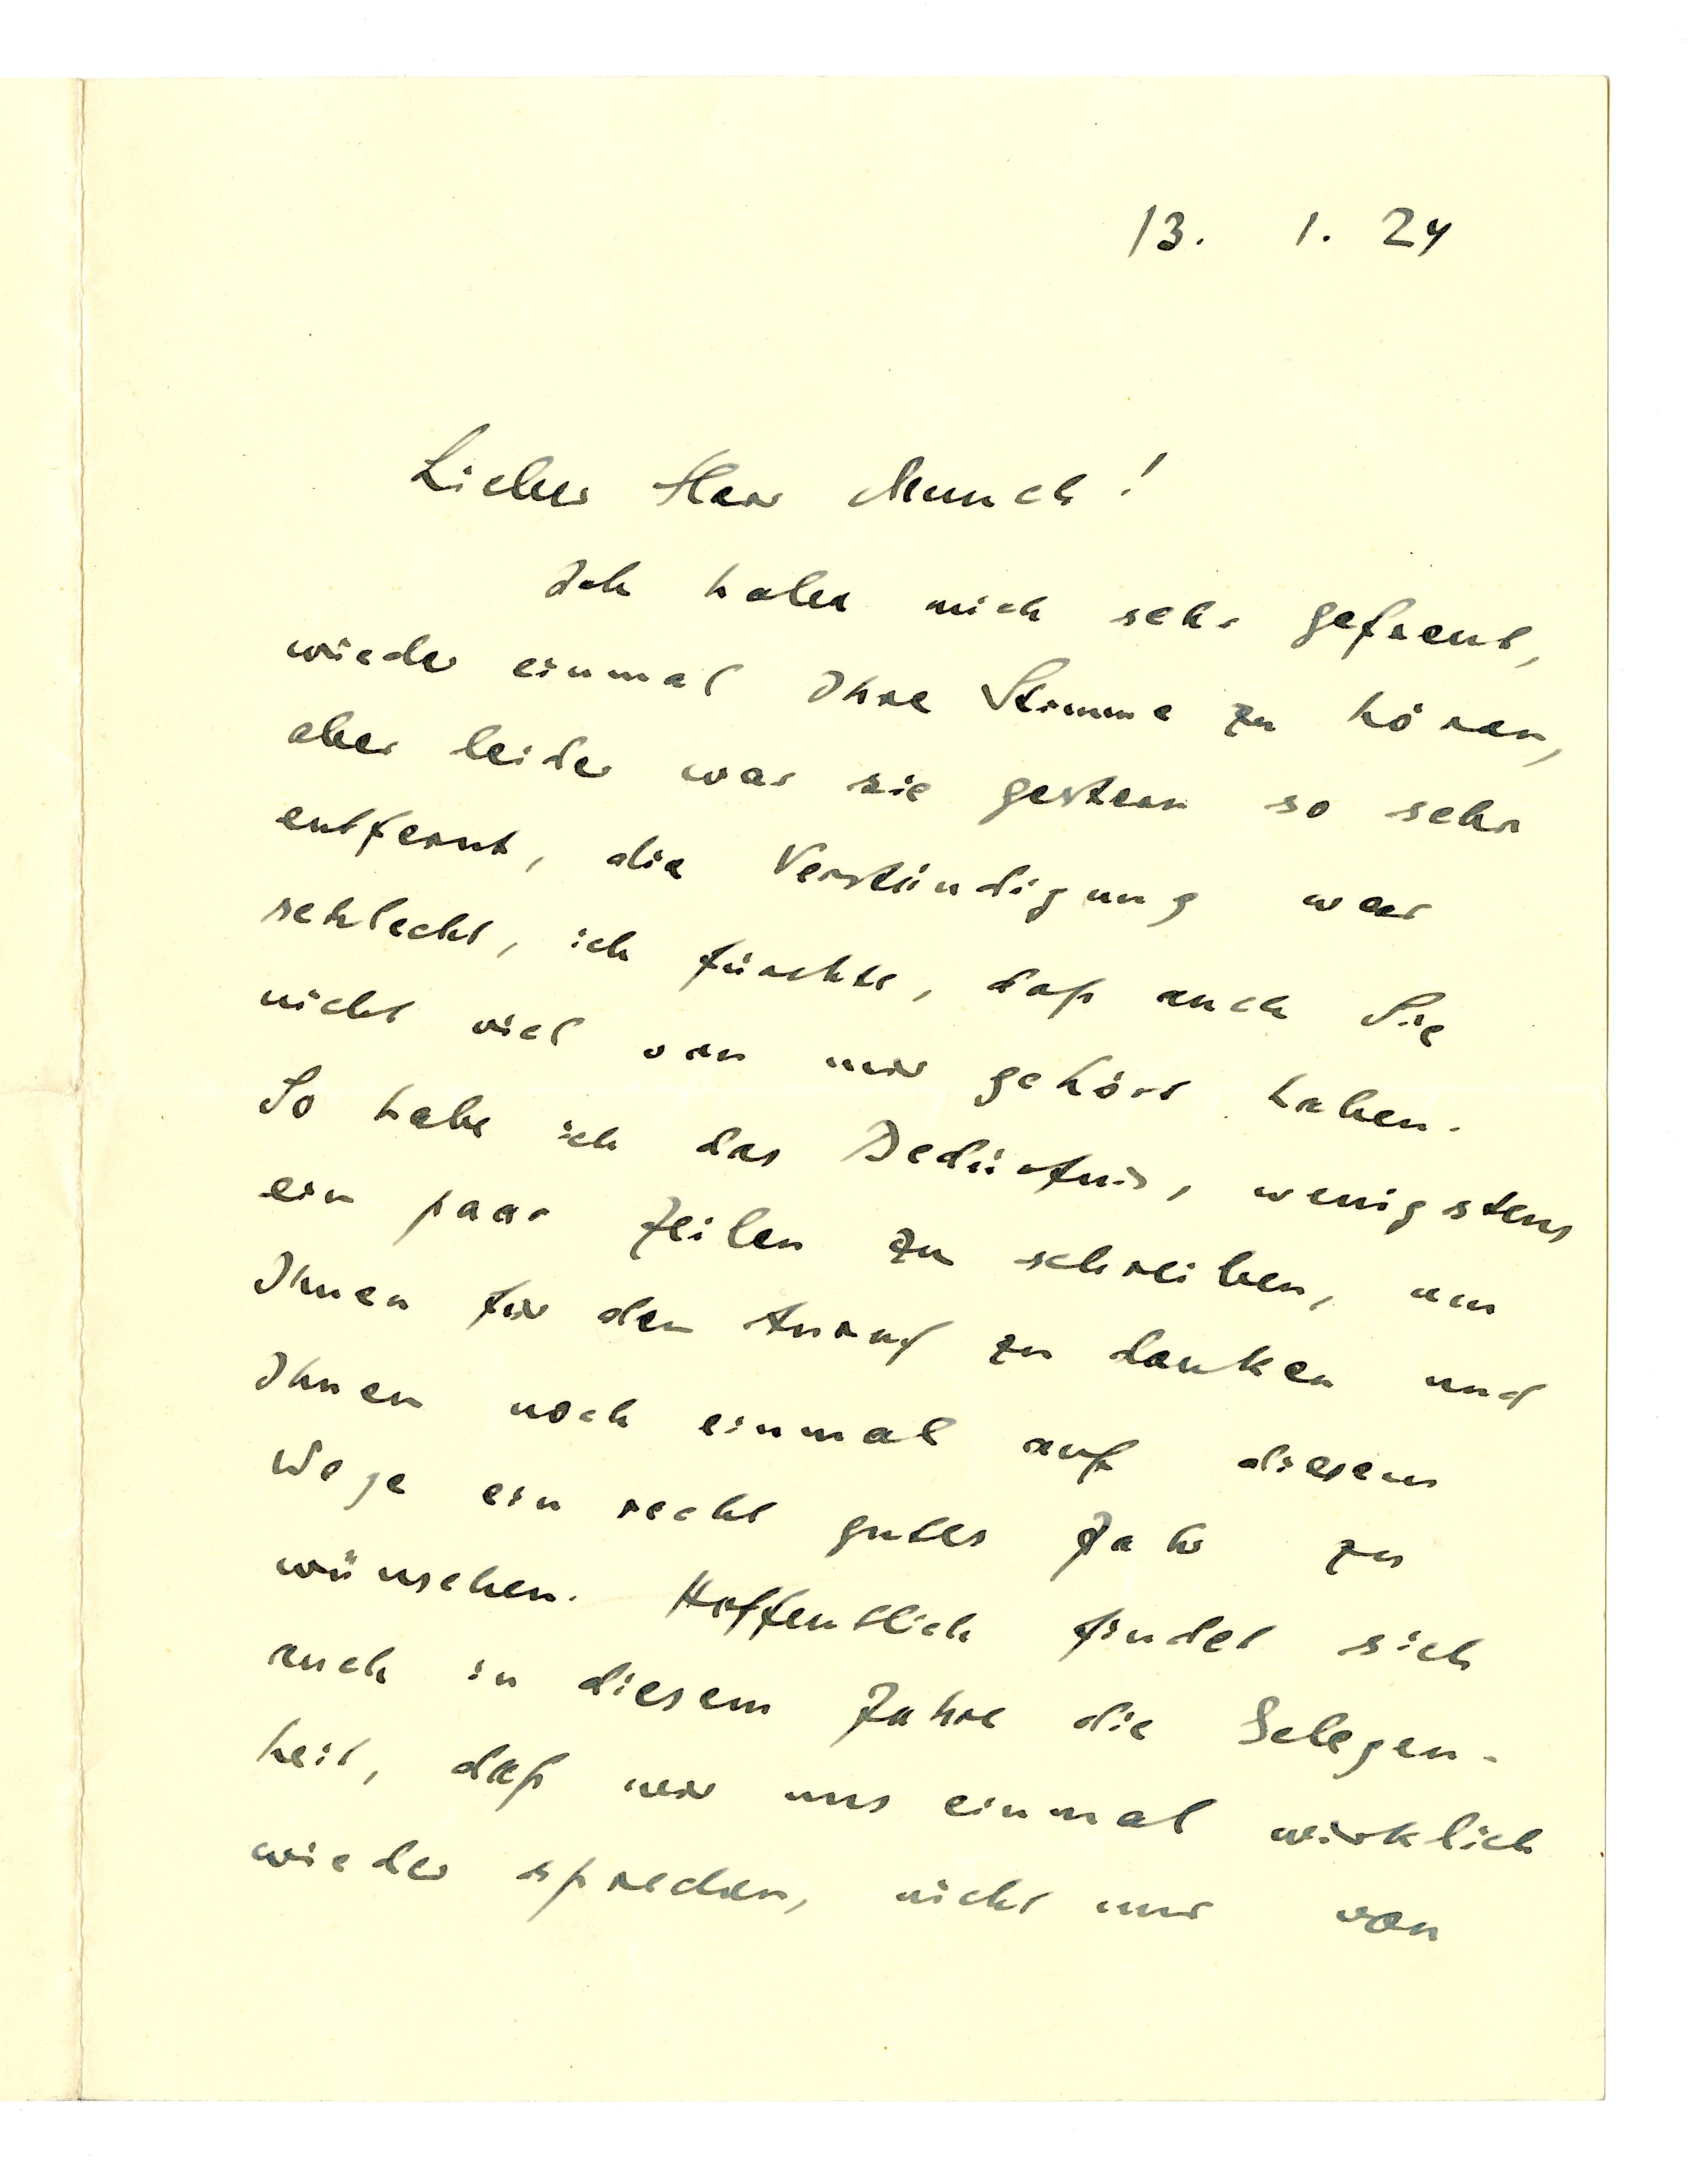 13. 1. 24
Lieber Herr Munch!
Ich habe mich sehr gefreut,
wieder einmal Ihre Stimme zu hören,
aber leider war sie gestern so sehr
entfernt, die Verständigung war
schlecht, ich fürchte, daß auch Sie
nicht viel von mir gehört haben.
So habe ich das Bedürfnis, wenigstens
ein paar Zeilen zu schreiben, um
Ihnen für den Anruf zu danken und
Ihnen noch einmal auf diesem
Wege ein recht gutes Jahr zu
wünschen. Hoffentlich findet sich
auch in diesem Jahre die Gelegen-
heit, daß wir uns einmal wirklich
wieder sprechen, nicht nur von